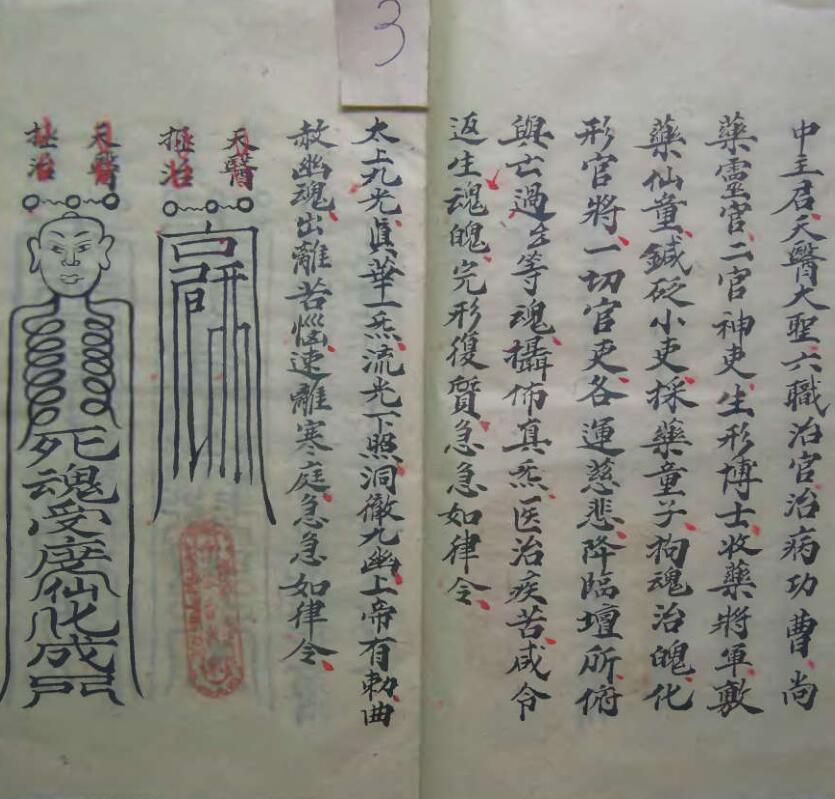 中主君天醫大聖六職治官治病功曹尚
藥靈官二官神吏生形博士收藥將軍敷
藥仙童鍼砭小吏採藥童子拘魂治魄化
形官將一切官吏各運慈悲降臨壇所俯
與亡過等魂攝佈真炁医治疾苦咸令
返生魂魄完形復質急急如律令
3
太上九光真華一炁流光下照洞徹九幽上帝有勅曲
赦幽魂出離苦惱速離寒庭急急如律令
天醫
拯治
天醫
拯治
死魂受度仙化成門